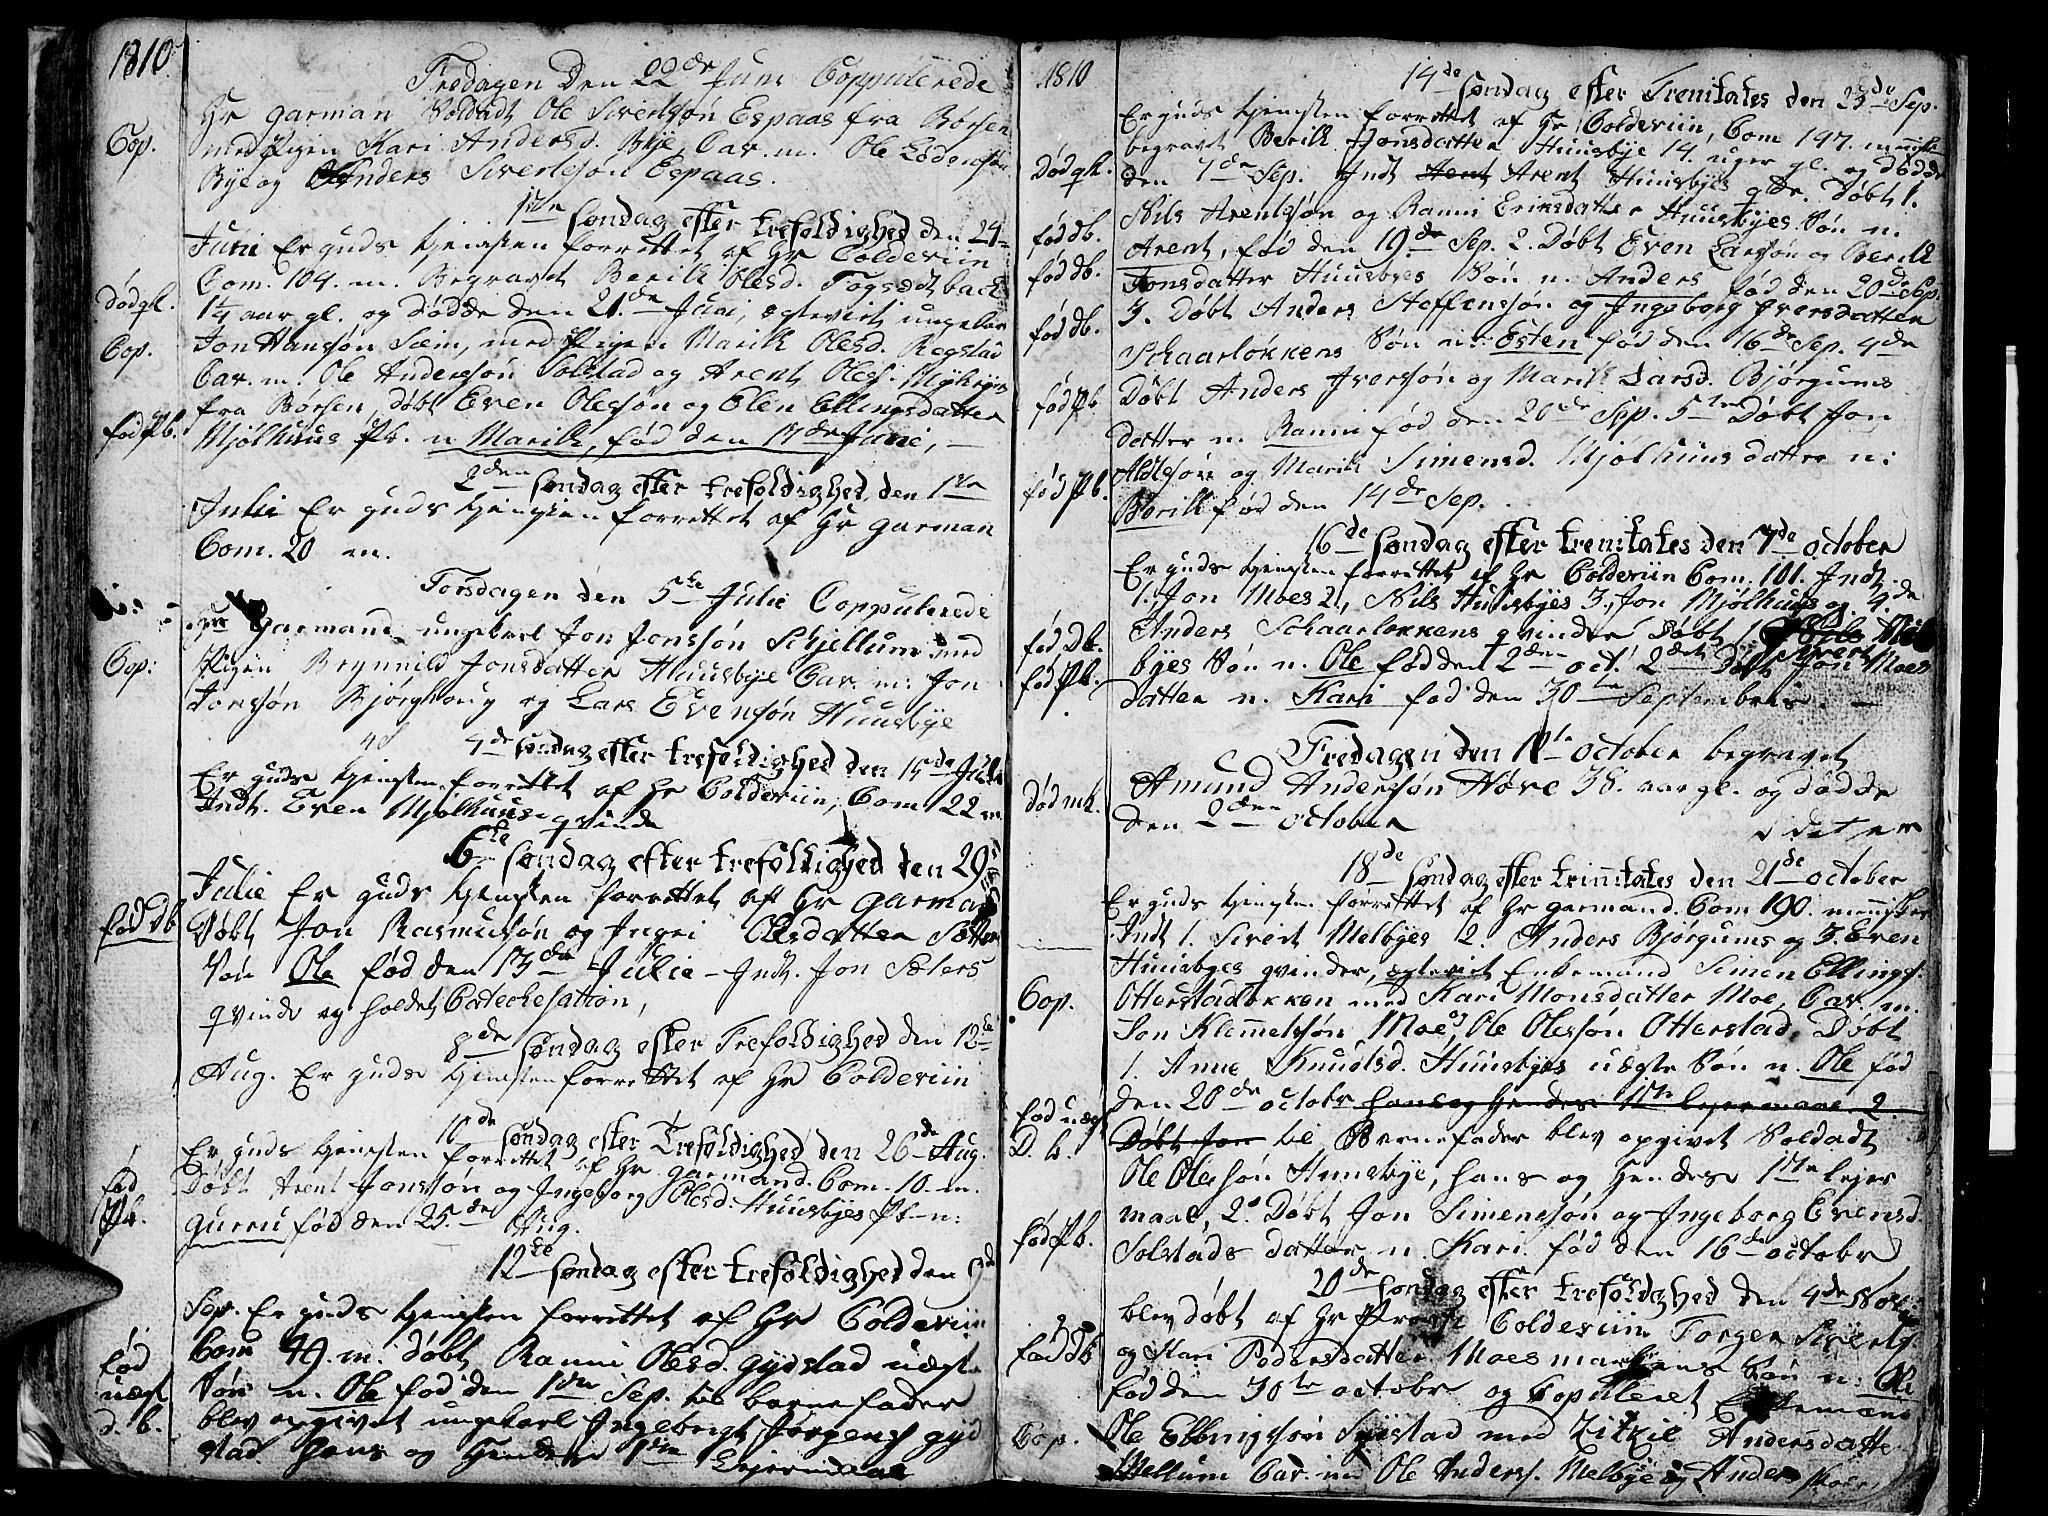 1810
Fredagen Den 22de Juni Coppulerede
Hr Garman Soldadt Ole Sivertsøn Espaas fra Børsen
Cop.
med Pigen Kari Andersd. Bye, Cav. m. Ole
Bye og Anders Sivertsøn Espaas.
1ste søndag efter trefoldighed den 24
Junii Er guds tjenesten forrettet af Hr Colderiin
Com. 104. m. Begravet Berith Olesd.
Død qk.
1/4 aar gl. og døde den 21.de Juni, egteviet ungekar
Cop.
Jon Hansøn Sem, med Pigen Marith Olesd. Regstad
Cav. m. Ole Andersøn Solstad og Arent Oless.
fra Børsen, døbt Even Olessøn og Elen Ellingsdatter
fød Pb.
Mjølhuus Pb. n Marith, fød den 17de Juni, –
2den søndag efter trefoldighed den 1ste
Julii Er guds tjenesten forrettet af Hr Garman
Com. 20 m.
Torsdagen den 5te Julii Coppulerede
Hr Garmand ungekarl Jon Jonssøn Schjellum med
Cop:
Pigen Brynnild Jonsdatter Huusbye Cav. m. Jon
Jonssøn Bjørghoug og Lars Evensøn Huusbye
4de søndag efter trefoldighed den 15de Julii
Er guds tjenesten forrettet af Hr Colderiin, Com 22 m
Indt. Even Mjølhuus qvinde
6te søndag efter trefoldighed den 29
Julie Er guds tjenesten forrettet af Hr Garman
fød Db
Døbt Jon Rasmusøn og Ingri Olesdatter
Søn Ole fød den 13de Julie – Indt. Jon Sæters
qvinde og holdet Catechesation,
8de søndag efter Trefoldighed den 12te
Aug. Er guds tjenesten forrettet af Hr Colderiin
10de søndag efter Trefoldighed den 26de Aug.
Er guds tjenesten forrettet af Hr Garmand. Com. 10. m.
fød
Døbt Arent Jonssøn og Ingeborg Olesd. Huusbyes Pb. n:
Pb.
Gurru fød den 25.de Aug.
12te søndag efter trefoldighed den 9de
Sep. Er guds tjenesten forrettet af Hr Colderiin
Com 49. m. døbt Ranni Olesd. Gydstad uægte
fød
Søn n. Ole fød den 1ste Sep. til barnefader
uægt
blev opgivet ungekarl Ingebergt Jørgens. Gyd
d. b.
stad. Hans og Hendes 1ste Leiermaal
1810
14de søndag efter Trenitates den 23de Sep.
Er guds tjenesten forrettet af Hr Colderiin, Com 147. menske
begravet Berith Jonsdatter Huusbye 14. uger gl. og døde
Død qk.
den 7de Sep. Indt Arent Huusbyes qde. Døbt 1.
fød db.
Nils Arentsøn og Ranni Eriksdatter Huusbyes Søn n.
fød db.
Arent, fød den 19de Sep. 2. Døbt Even Larssøn og Berith
Jonsdatter Huusbyes Søn n. Anders fød den 20de Sep.
fød db.
3. Døbt Anders Steffensøn og Ingeborg Iversdatter
Schaarløkkens Søn n. Esten fød den 16de Sep. 4de
fød Pb
Døbt Anders Iversøn og Marith Larsd. Bjørgums
datter n. Ranni fød den 20de Sep. 5te Døbt Jon
fød Pb.
og Marith Simensd. Mjølhuus datter n:
Berith fød den 14de Sep.
16de søndag efter trenitates den 7de october
Er guds tjenesten forrettet af Hr Colderiin Com. 101. Indt.
1. Jon Moes 2., Nils Huusbyes 3. Jon Mjølhuus og 4.de
fød Db.
Anders Schaarløkkens qvinder Døbt 1 Nils Huus
fød Pb.
byes Søn n. Ole fød den 2den oct. 2det Døbt Jon Moes
datter n. Kari fød den 30te Septembris. –
Fredagen den 12te october begravet
Amund Andersøn Høve 38. aar gl. og døde
død mk.
den 2den october
18de søndag efter trinnitates den 21de october
Er guds tjenesten forrettet af Hr Garmand. Com 190. mennisker
Indt 1. Sivert Melbyes 2. Anders Bjørgums og 3. Even
Huusbyes qvinder, egteviet Enkemand Simen Ellings.
Cop.
Otterstadløkken med Kari Monsdatter Moe, Cav. m.
Jon Klemmetsøn Moe og Ole Olessøn Otterstad. Døbt
1. Anne Knudsd. Huusbyes uægte Søn n. Ole fød
fød uægt
den 20de octobr hans og Hendes 1ste lejermaal 2.
D. b.
Døbt Jon til Barnefader blev opgivet Soldadt
Ole Olessøn Huusbye, hans og Hendes 1ste lejer
maal, 2. Døbt Jon Simensøn og Ingeborg Evensd.
fød Pb.
Solstads datter n. Kari fød den 16de octobr
20de søndag efter trefoldighed den 4de
blev døbt af Hr Provst Colderiin Torger Siverts.
fød Db
og Kari Pedersdatter Moesmarkens Søn n. Ole
fød den 30te octobr og Copuleret Enkemand
Cop.
Ole Ellingsøn med Zitzil Andersdatte
Skellum Cav. m Ole Anders. Melbye og Anders